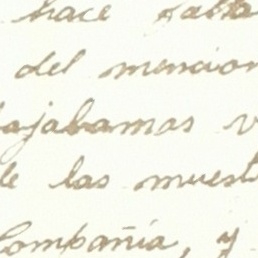 hace falta
del mencion
bajabamos v
de las muest
Compañia, y